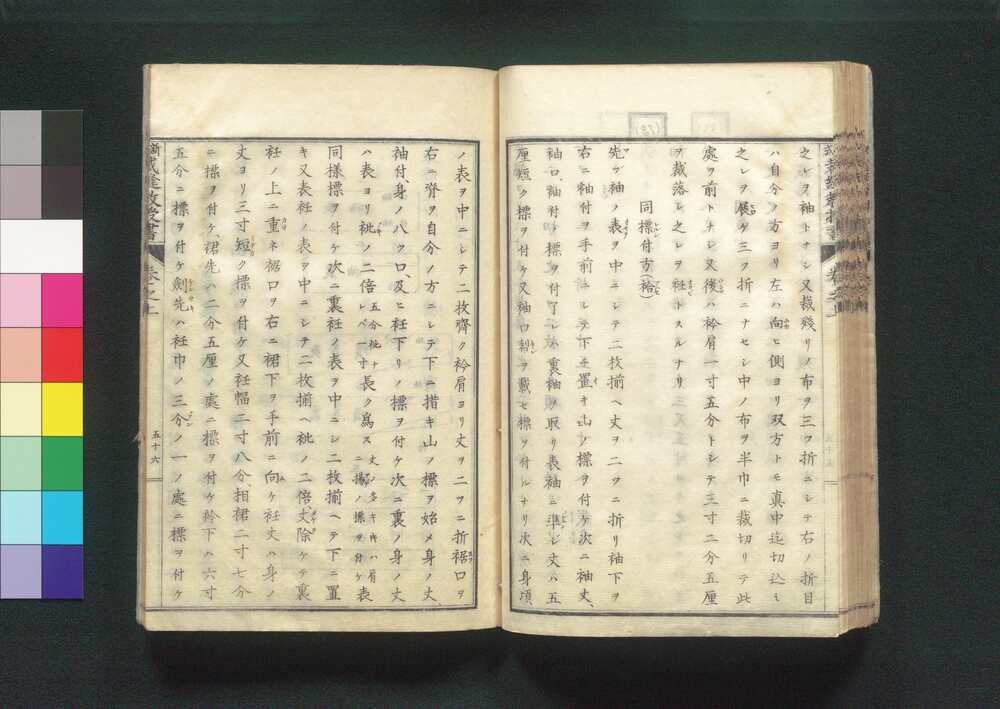 之レヲ袖トナシ又裁殘リノ布ヲ三ツ折ニシテ右ノ折目
ハ自分ノ方ヨリ左ハ向ヒ側ヨリ双方トモ真中迄切込ミ
之レヲ展ケ三ツ折ニナセシ中ノ布ヲ半巾ニ裁切リテ此
處ヲ前トナシ又後ハ衿肩一寸五分トシテ三寸二分五厘
ヲ裁落シ之レヲ衽トスルナリ
同標付方(袷)
先ヅ袖ノ表ヲ中ニシテ二枚揃ヘ丈ヲ二ツニ折リ袖下ヲ
右ニ袖付ヲ手前ニシテ下ニ置キ山ノ標ヲ付ケ次ニ袖丈、
袖口、袖付ケ標ヲ付了レバ裏袖ヲ取リ表袖ニ準シ丈ハ五
厘短ク標ヲ付ケ又袖口裂ヲ載セ標ヲ付ルナリ次ニ身頃
ノ表ヲ中ニシテ二枚齊ク衿肩ヨリ丈ヲ二ツニ折裾口ヲ
右ニ脊ヲ自分ノ方ニシテ下ニ措キ山ノ標ヲ始メ身ノ丈、
袖付、身ノ八ツ口、及ヒ衽下リノ標ヲ付ケ次ニ裏ノ身ノ丈
ハ表ヨリ祍ノ二倍五分祍ナレバ一寸長ク爲ス丈ノ多キキハ肩ニ揚ノ標ヲ付ケ表
同樣標ヲ付ケ次ニ裏衽ノ表ヲ中ニシ二枚揃ヘテ下ニ置
キ又表衽ノ表ヲ中ニシテ二枚揃ヘ祍ノ二倍丈除ケテ裏
衽ノ上ニ重ネ裾口ヲ右ニ裙下ヲ手前ニ向ケ衽丈ハ身ノ
丈ヨリ三寸短ク標ヲ付ケ又衽幅二寸八分、相裙二寸七分
ニ標ヲ付ケ裙先ハ二分五厘ノ處ニ標ヲ付ケ衿下ハ六寸
五分ニ標ヲ付ケ劍先ハ衽巾ノ三分ノ一ノ處ニ標ヲ付ケ
裁縫教授書
卷之上
五十六